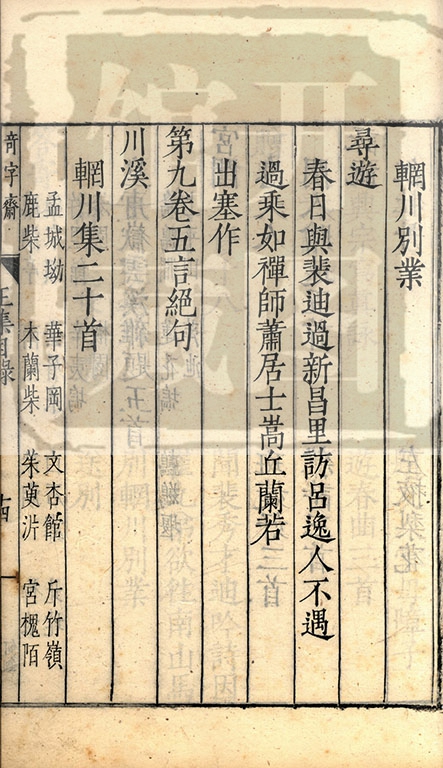 輞川別業
尋遊
春日與裴迪過新昌里訪呂逸人不遇
過乘如禪師蕭居士嵩丘蘭若
出塞作
第九卷五言絕句
川溪
輞川集二十首
孟城坳 華子岡 文杏館 斤竹嶺
鹿柴 木蘭柴 茱萸沜 宮槐陌
奇字齋
王集目錄
十四